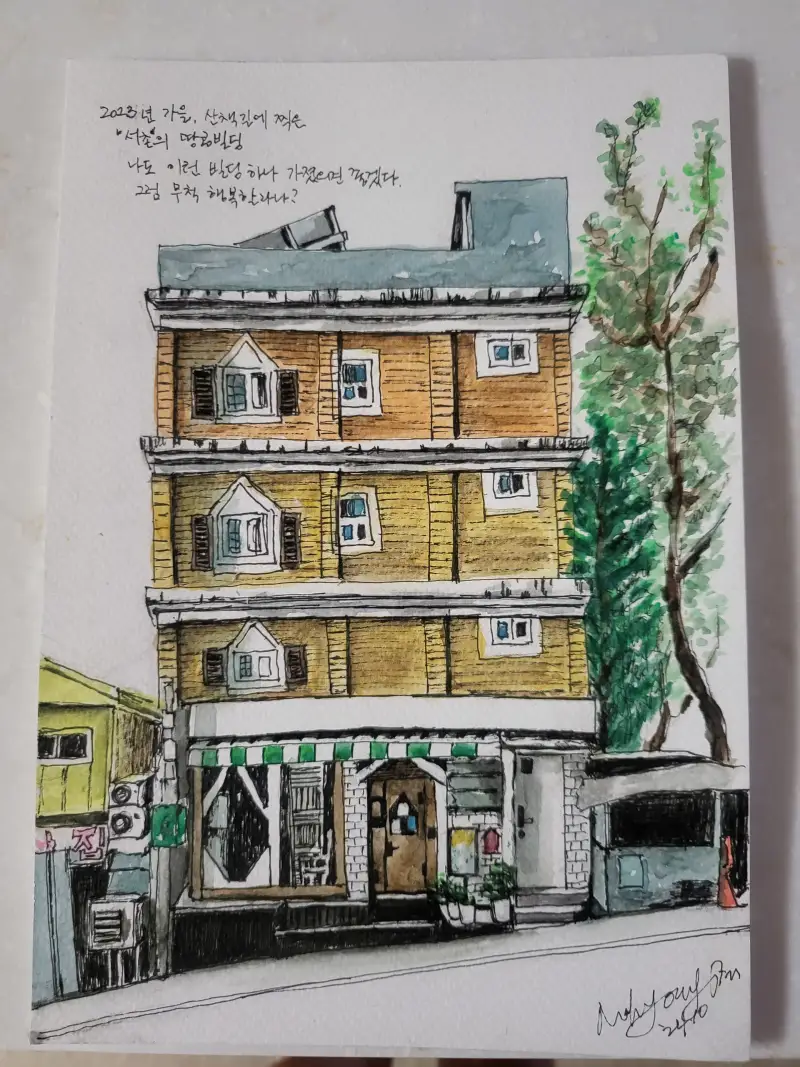 2023년 가을, 산책길에 찍은
"서촌"의 땅콩빌딩
나도 이런 빌딩 하나 가졌으면 좋겠다.
그럼 무척 행복할라나?